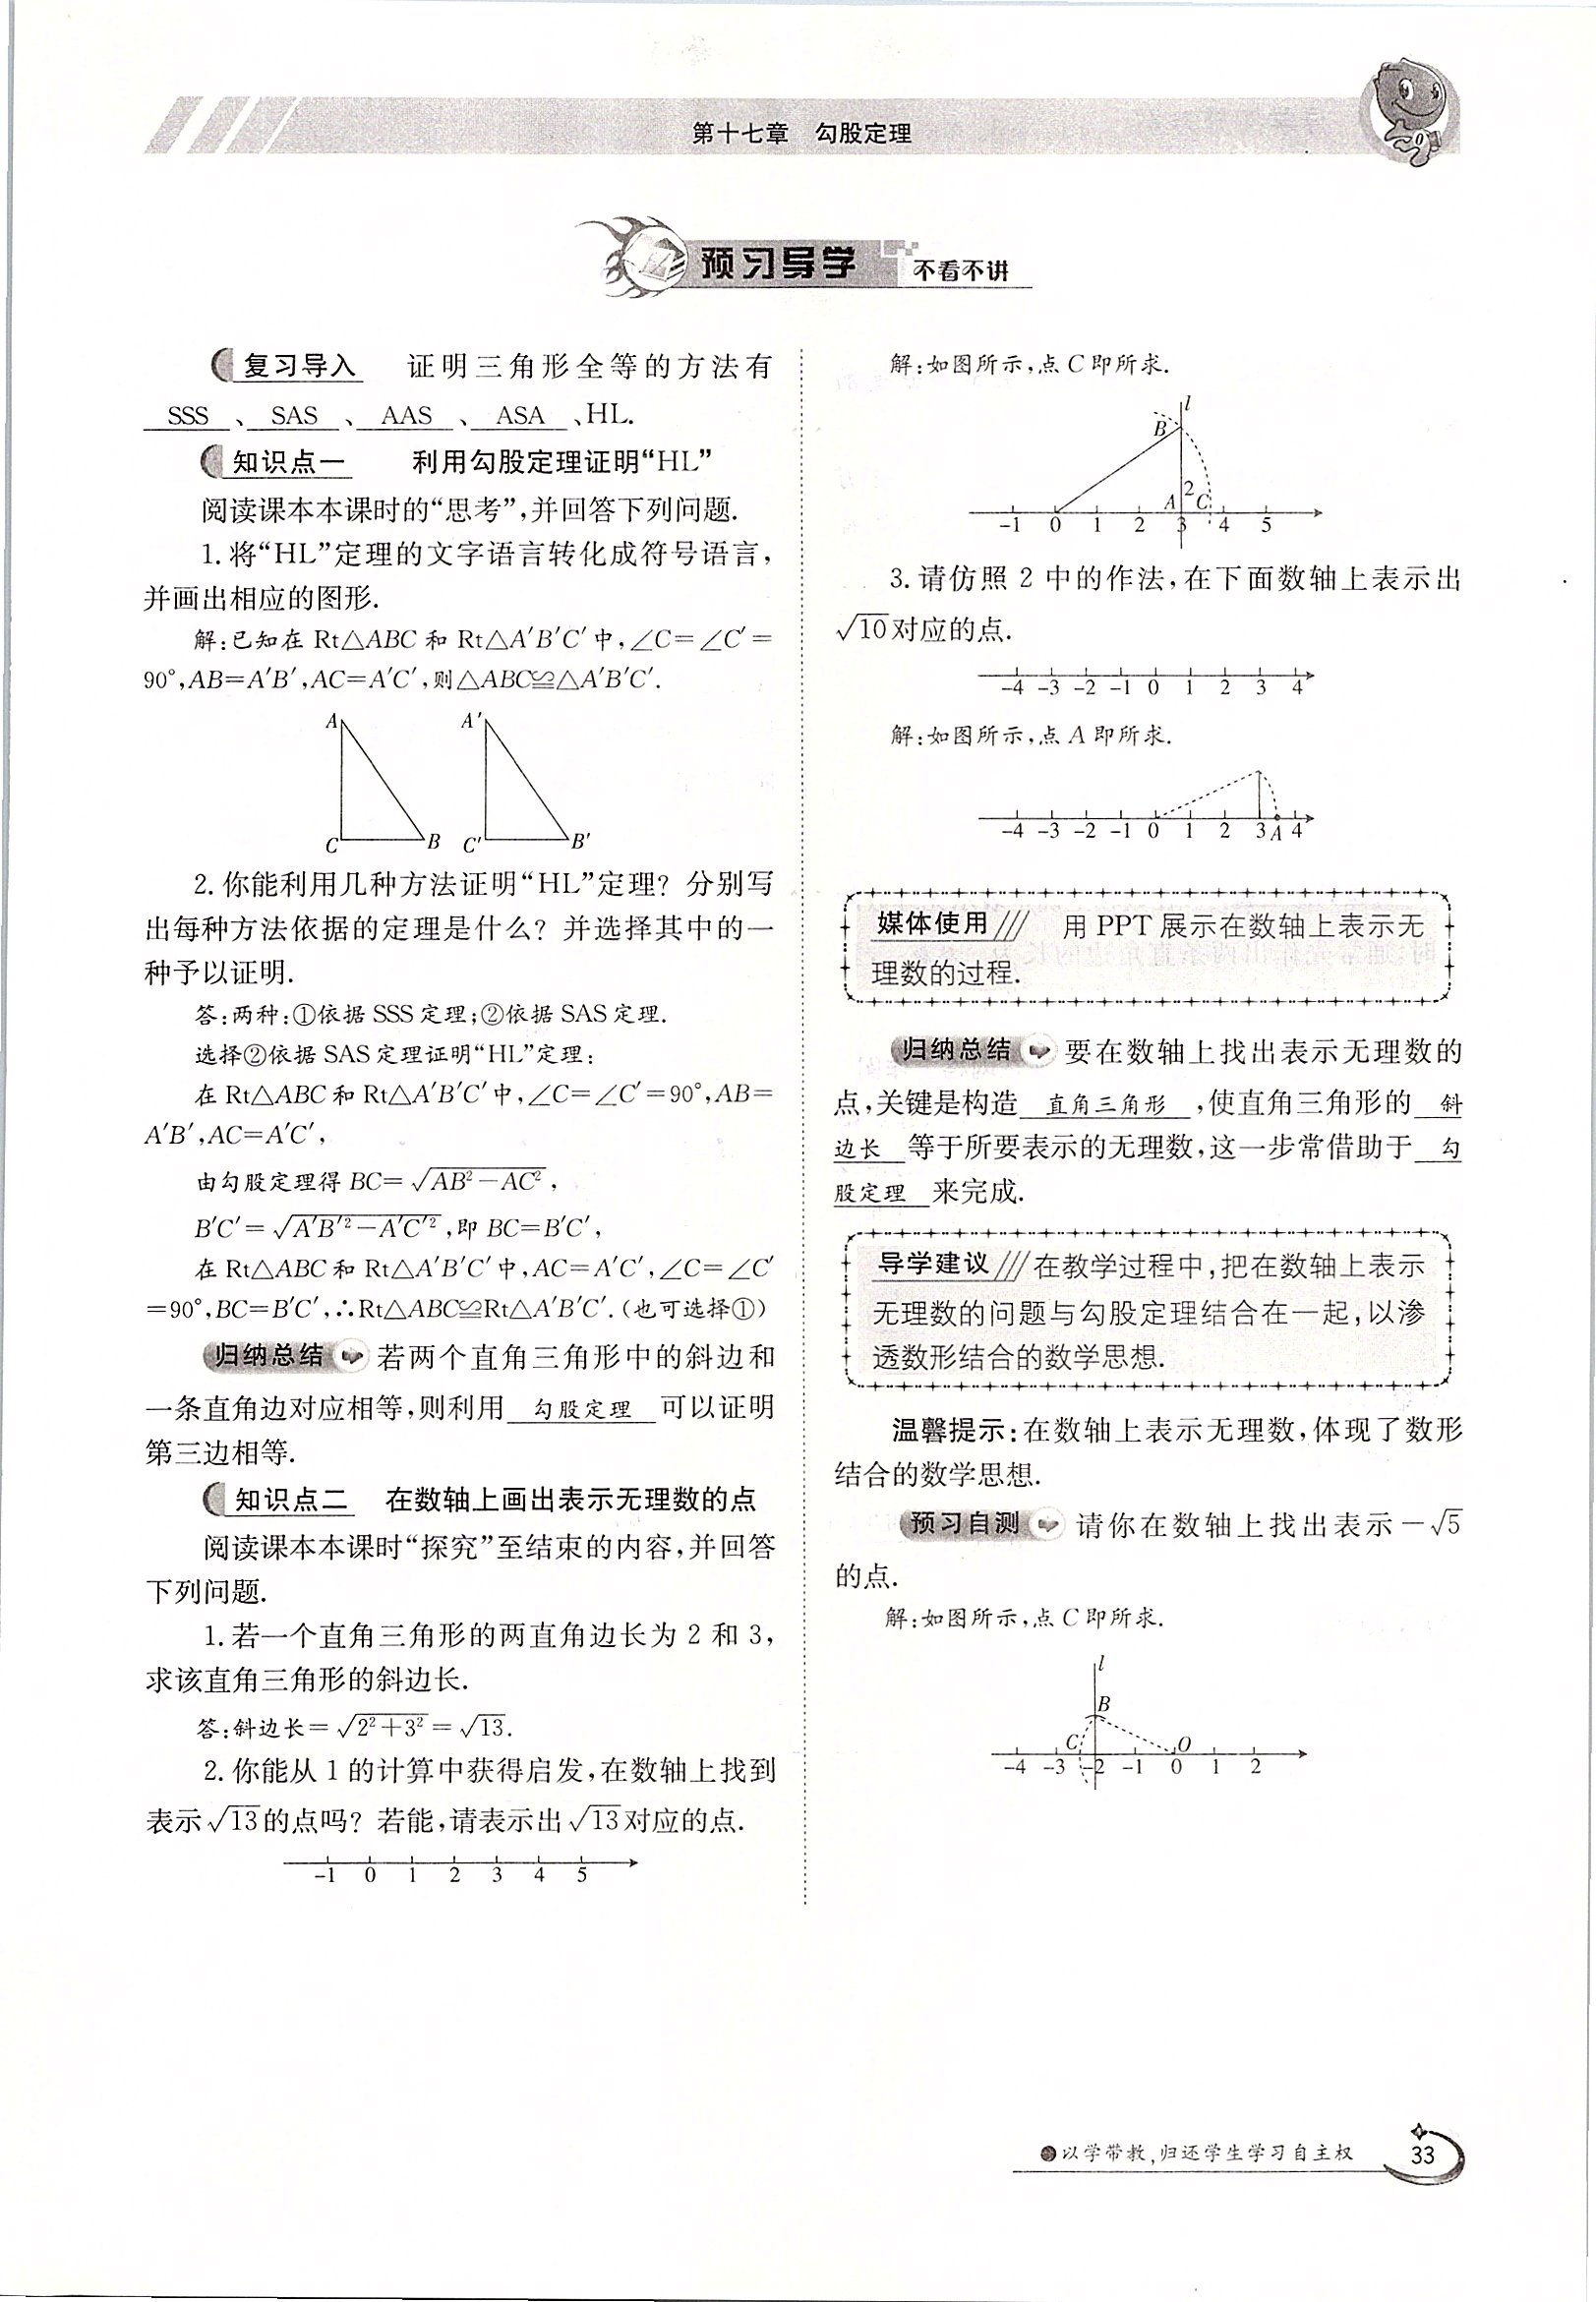 第十七章　勾股定理
预习导学　不看不讲
复习导入　证明三角形全等的方法有
SSS、SAS、AAS、ASA、HL.
知识点一　利用勾股定理证明“HL”
阅读课本本课时的“思考”,并回答下列问题.
1.将“HL”定理的文字语言转化成符号语言,
并画出相应的图形.
解:已知在 Rt△ABC 和 Rt△A′B′C′中,∠C=∠C′=
90°,AB=A′B′,AC=A′C′,则△ABC≌△A′B′C′.
A　A′
C　B　C′　B′
2.你能利用几种方法证明“HL”定理? 分别写
出每种方法依据的定理是什么? 并选择其中的一
种予以证明.
答:两种:①依据 SSS 定理;②依据 SAS 定理.
选择②依据 SAS 定理证明“HL”定理:
在 Rt△ABC 和 Rt△A′B′C′中,∠C=∠C′=90°,AB=
A′B′,AC=A′C′,
由勾股定理得 BC=√(AB²-AC²),
B′C′=√(A′B′²-A′C′²),即 BC=B′C′,
在 Rt△ABC 和 Rt△A′B′C′中,AC=A′C′,∠C=∠C′
=90°,BC=B′C′,∴Rt△ABC≌Rt△A′B′C′.(也可选择①)
归纳总结　若两个直角三角形中的斜边和
一条直角边对应相等,则利用 勾股定理 可以证明
第三边相等.
知识点二　在数轴上画出表示无理数的点
阅读课本本课时“探究”至结束的内容,并回答
下列问题.
1.若一个直角三角形的两直角边长为 2 和 3,
求该直角三角形的斜边长.
答:斜边长=√(2²+3²)=√13.
2.你能从 1 的计算中获得启发,在数轴上找到
表示√13的点吗? 若能,请表示出√13对应的点.
-1 0 1 2 3 4 5
解:如图所示,点 C 即所求.
l
B
A 2 C
-1 0 1 2 3 4 5
3.请仿照 2 中的作法,在下面数轴上表示出
√10对应的点.
-4 -3 -2 -1 0 1 2 3 4
解:如图所示,点 A 即所求.
-4 -3 -2 -1 0 1 2 3 A 4
媒体使用///　用 PPT 展示在数轴上表示无
理数的过程.
归纳总结　要在数轴上找出表示无理数的
点,关键是构造 直角三角形 ,使直角三角形的 斜
边长 等于所要表示的无理数,这一步常借助于 勾
股定理 来完成.
导学建议///在教学过程中,把在数轴上表示
无理数的问题与勾股定理结合在一起,以渗
透数形结合的数学思想.
温馨提示:在数轴上表示无理数,体现了数形
结合的数学思想.
预习自测　请你在数轴上找出表示-√5
的点.
解:如图所示,点 C 即所求.
l
B
C　O
-4 -3 -2 -1 0 1 2
●以学带教,归还学生学习自主权　33